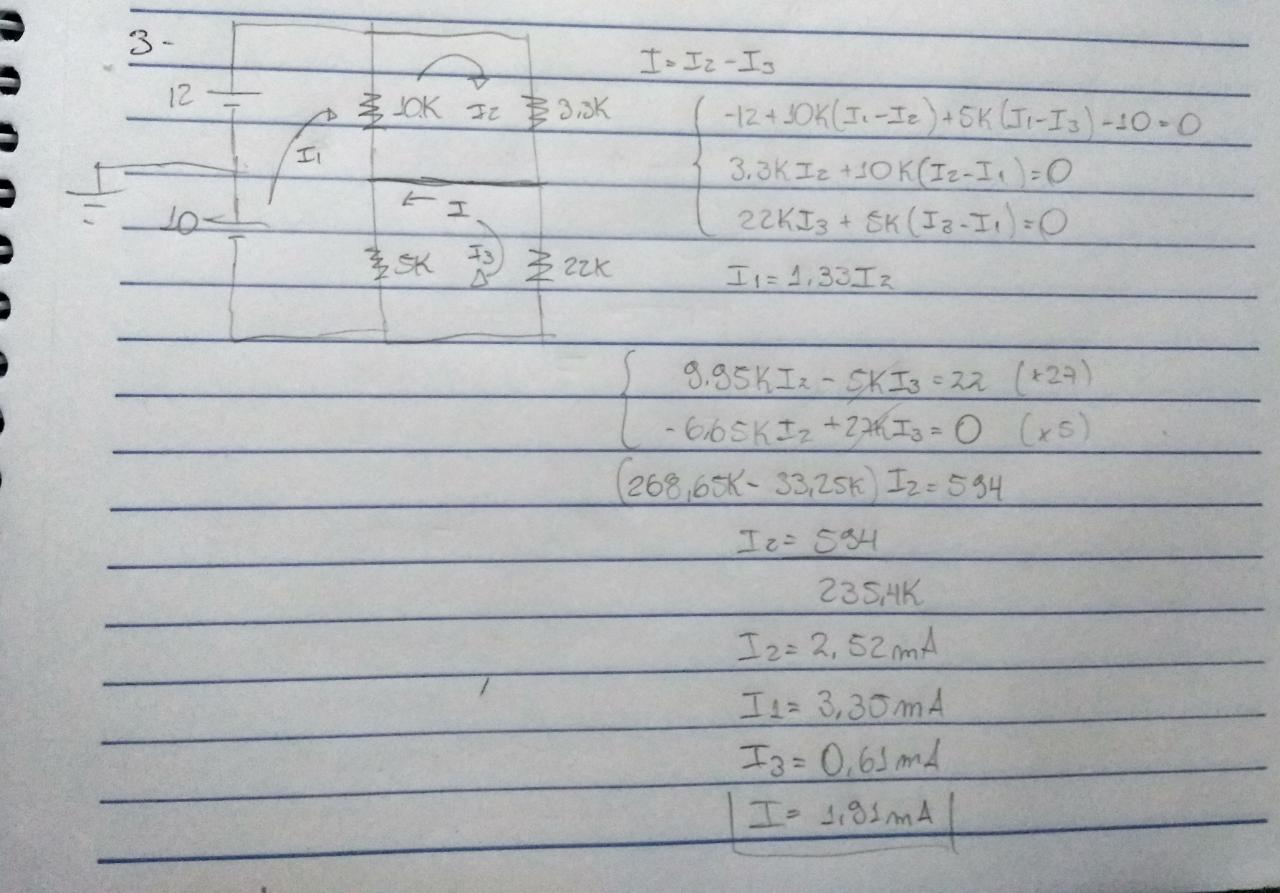 3-
12
10K
I2
3.3K
I1
10
I
5K
I3
22K
I = I2 - I3
-12+10K(I1-I2)+5K(I1-I3)-10=0
3.3KI2+10K(I2-I1)=0
22KI3+5K(I3-I1)=0
I1=1,33I2
9.95KI2-5KI3=22 (x27)
-6,65KI2+27KI3=0 (x5)
(268,65K-33,25K)I2=594
I2=594
235,4K
I2=2,52mA
I1=3,35mA
I3=0,61mA
I=1,91mA